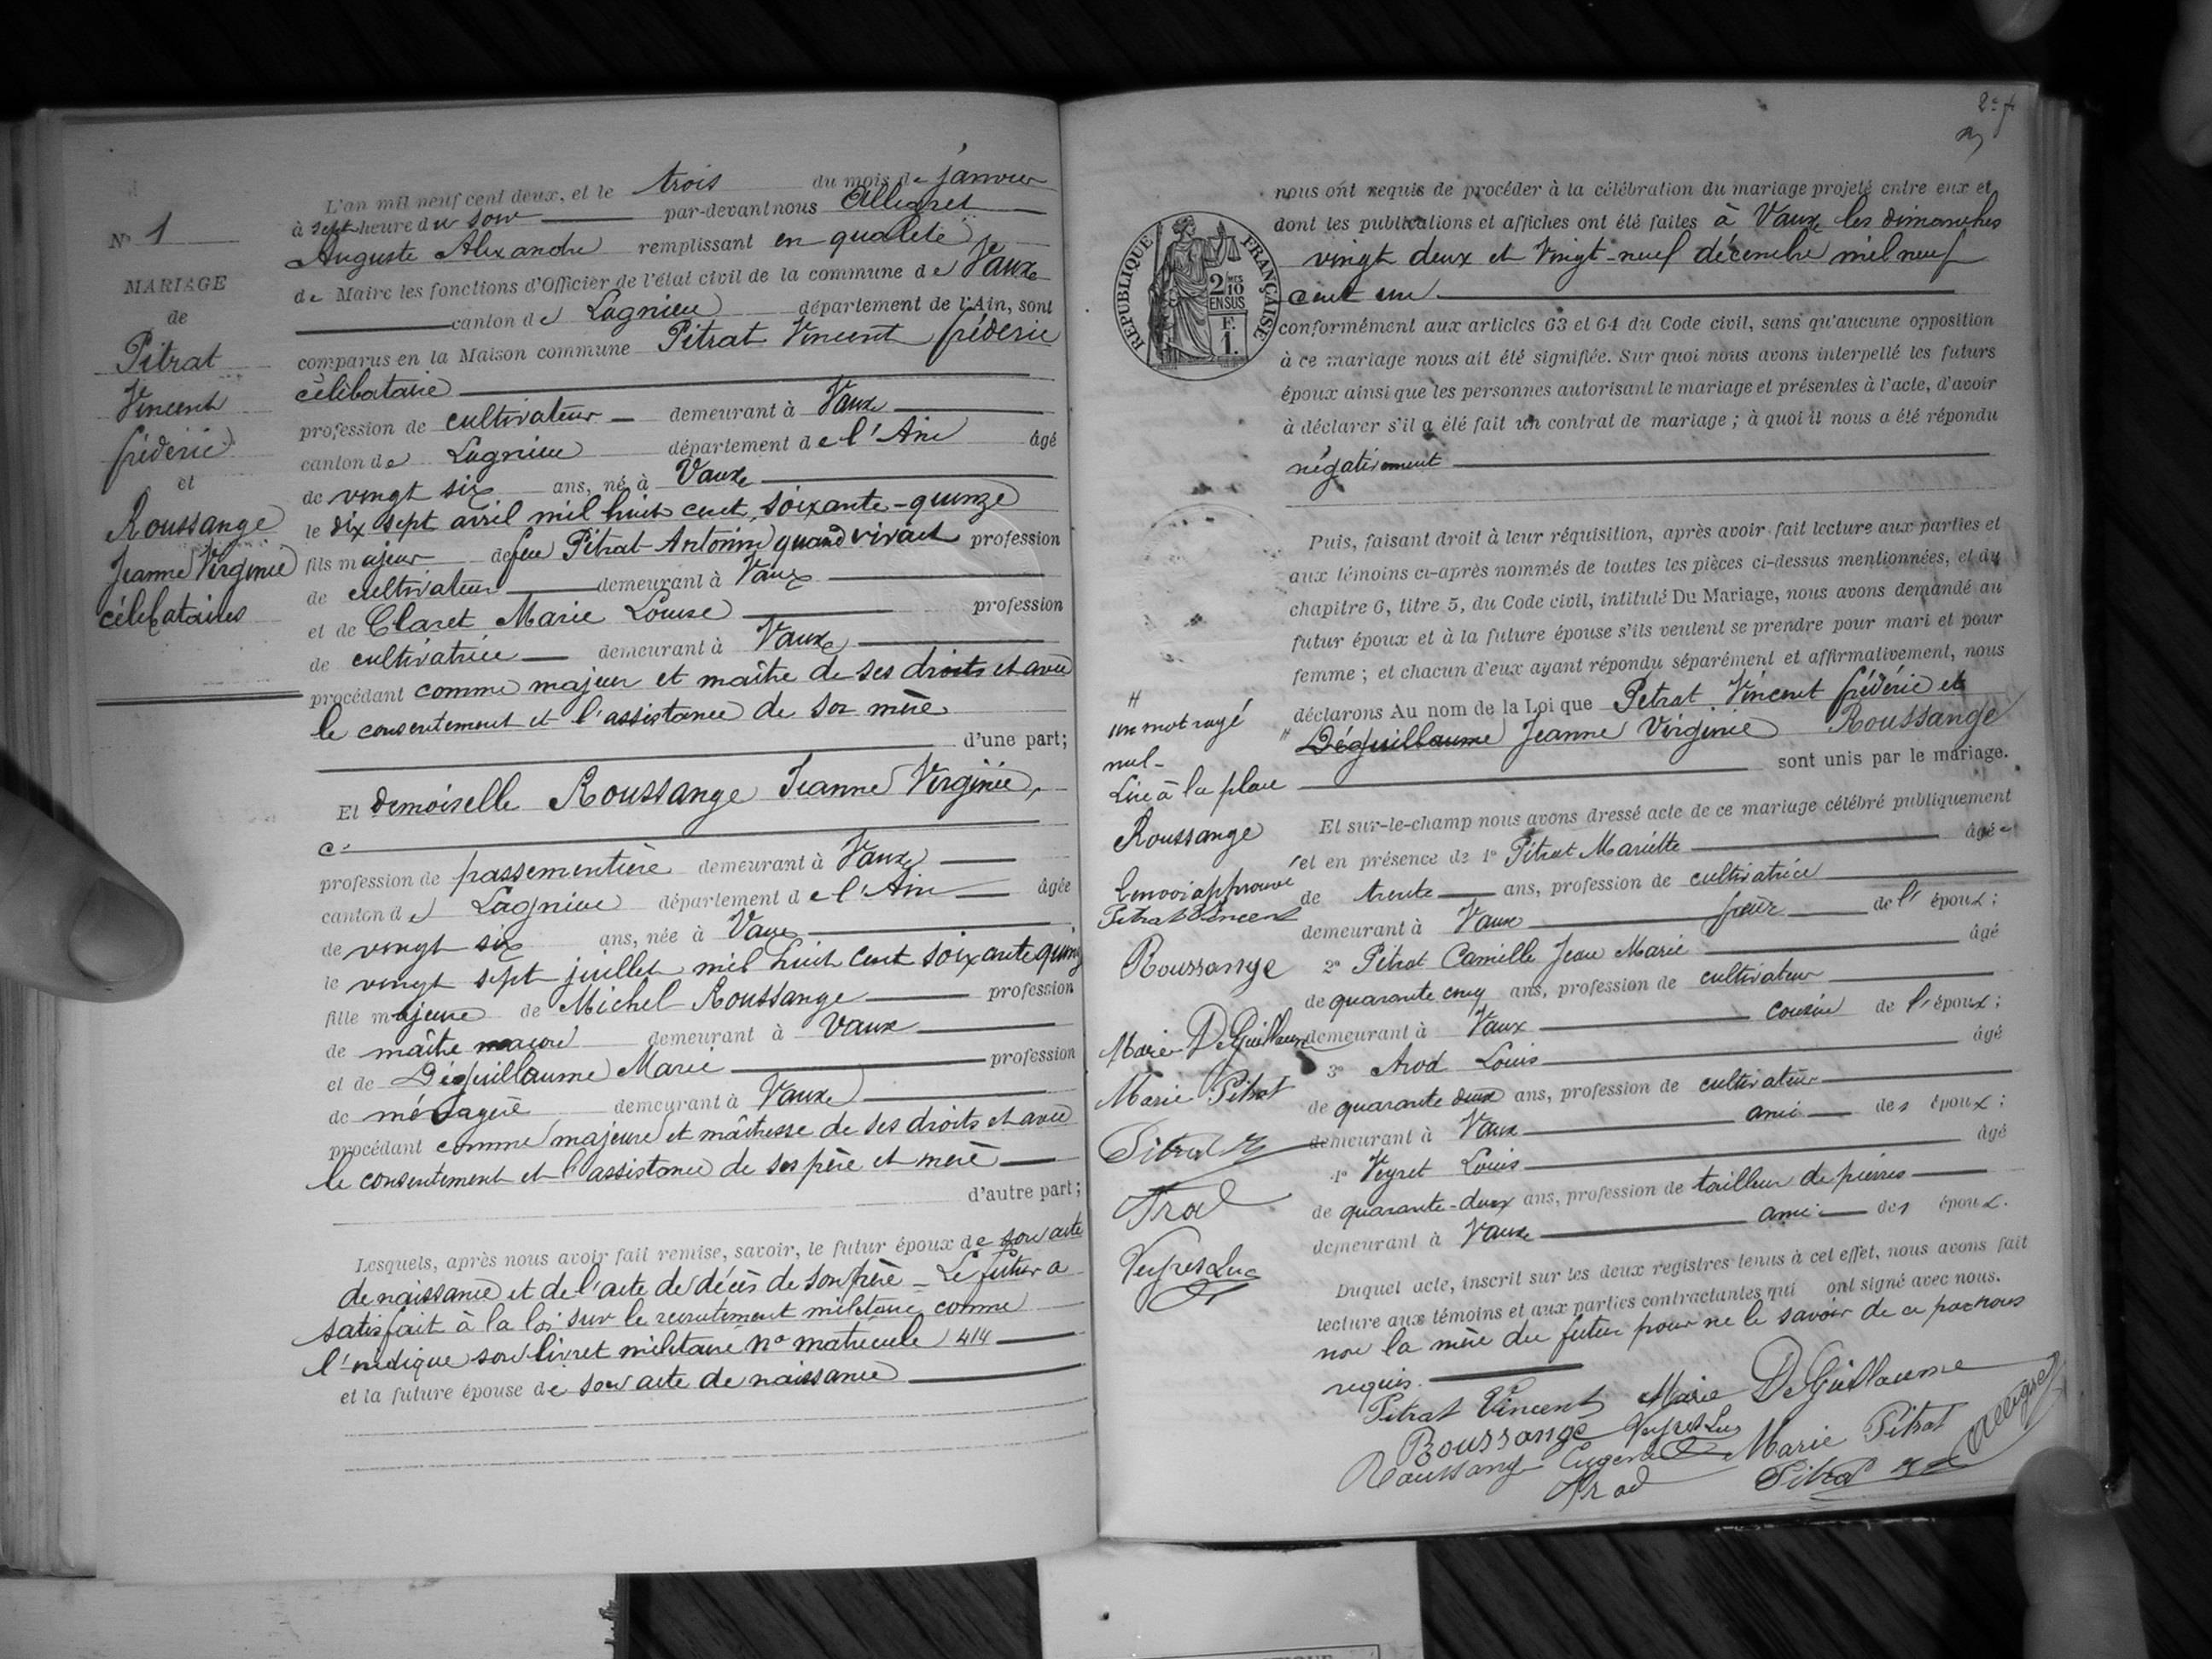 N° 1
MARIAGE
de
Pitrat
Vincent
frédéric
et
Roussange
Jeanne Virginie
célibataires
L'an mil neuf cent deux, et le trois du mois de janvier
à sept heure du soir par-devant nous Alligret
Auguste Alexandre remplissant en qualité
de Maire les fonctions d'Officier de l'état civil de la commune de Vaux
canton de Lagnieu département de l'Ain, sont
comparus en la Maison commune Pitrat Vincent frédéric
célibataire
profession de cultivateur demeurant à Vaux
canton de Lagnieu département de l'Ain âgé
de vingt six ans, né à Vaux
le dix sept avril mil huit cent soixante-quinze
fils majeur de feu Pitrat Antonin quand vivait profession
de cultivateur demeurant à Vaux
et de Claret Marie Louise profession
de cultivatrice demeurant à Vaux
procédant comme majeur et maître de ses droits et avec
le consentement et l'assistance de sa mère
d'une part;
Et demoiselle Roussange Jeanne Virginie,
c.
profession de passementière demeurant à Vaux
canton de Lagnieu département de l'Ain âgée
de vingt six ans, née à Vaux
le vingt sept juillet mil huit cent soixante quinz
fille majeure de Michel Roussange profession
de maître maçon demeurant à Vaux
et de Déguillaume Marie profession
de ménagère demeurant à Vaux
procédant comme majeure et maîtresse de ses droits et avec
le consentement et l'assistance de ses père et mère
d'autre part;
Lesquels, après nous avoir fait remise, savoir, le futur époux de son acte
de naissance et de l'acte de décès de son père - Le futur a
satisfait à la loi sur le recrutement militaire comme
l'indique son livret militaire n° matricule 414
et la future épouse de son acte de naissance
2e f
RÉPUBLIQUE FRANÇAISE
2 MES
10
EN SUS
F.
1.
nous ont requis de procéder à la célébration du mariage projeté entre eux et
dont les publications et affiches ont été faites à Vaux les dimanches
vingt deux et vingt-neuf décembre mil neuf
cent un
conformément aux articles 63 et 64 du Code civil, sans qu'aucune opposition
à ce mariage nous ait été signifiée. Sur quoi nous avons interpellé les futurs
époux ainsi que les personnes autorisant le mariage et présentes à l'acte, d'avoir
à déclarer s'il a été fait un contrat de mariage; à quoi il nous a été répondu
négativement
Puis, faisant droit à leur réquisition, après avoir fait lecture aux parties et
aux témoins ci-après nommés de toutes les pièces ci-dessus mentionnées, et du
chapitre 6, titre 5, du Code civil, intitulé Du Mariage, nous avons demandé au
futur époux et à la future épouse s'ils veulent se prendre pour mari et pour
femme; et chacun d'eux ayant répondu séparément et affirmativement, nous
déclarons Au nom de la Loi que Pitrat Vincent frédéric et
" Déguillaume Jeanne Virginie Roussange
sont unis par le mariage.
Et sur-le-champ nous avons dressé acte de ce mariage célébré publiquement
et en présence de 1° Pitrat Mariette âgée
de trente ans, profession de cultivatrice
demeurant à Vaux sœur de l' époux;
2° Pitrat Camille Jean Marie âgé
de quarante cinq ans, profession de cultivateur
demeurant à Vaux cousin de l' époux;
3° Arod Louis âgé
de quarante deux ans, profession de cultivateur
demeurant à Vaux ami des époux;
4° Veyret Louis âgé
de quarante-deux ans, profession de tailleur de pierres
demeurant à Vaux ami des époux.
Duquel acte, inscrit sur les deux registres tenus à cet effet, nous avons fait
lecture aux témoins et aux parties contractantes qui ont signé avec nous.
non la mère du futur pour ne le savoir de ce par nous
requis.
Pitrat Vincent Marie DeGuillaume
Roussange Veyret Luc Marie Pitrat Alligret
Roussange Eugène
Arod Pitrat
"
un mot rayé
nul-
Lire à la place
Roussange
Renvoi approuvé
Pitrat Vincent
Roussange
Marie DeGuillaume
Marie Pitrat
Pitrat
Arod
Veyret Luc